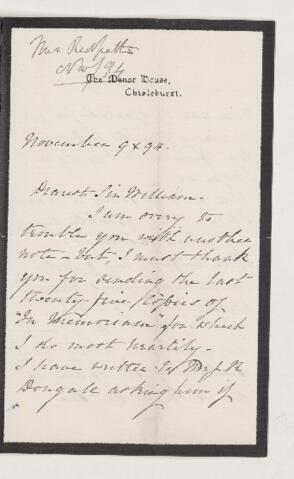 Mrs Redpath
Nov 9/94
The Manor House,
Chislehurst.
November 9 94.
Dearest Sir William.
I am sorry to
trouble you with another
note - but, I must thank
you for sending the last
twenty-five copies of
"In Memoriam" for which
I do most heartily -
I have written to Mr J R
Dougale asking him if